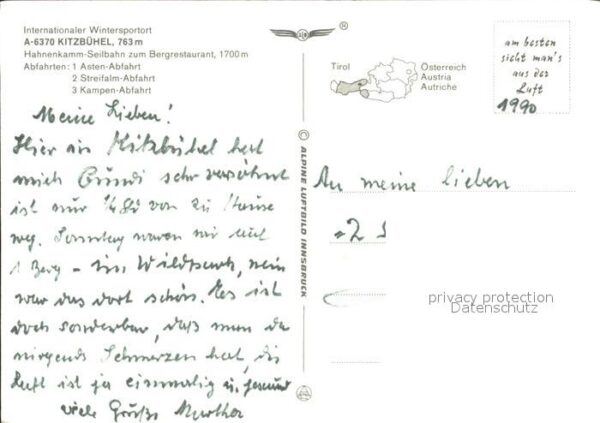 Internationaler Wintersportort
A-6370 KITZBÜHEL, 763 m
Hahnenkamm-Seilbahn zum Bergrestaurant, 1700 m
Abfahrten: 1 Asten-Abfahrt
2 Streifalm-Abfahrt
3 Kampen-Abfahrt
Meine Lieben!
Hier in Kitzbühel hat
mich Gundi sehr verwöhnt
ist nur 1/4 Std von zu Hause
weg. Sonntag waren wir auf
1 Berg - im Wildpark, nein
war das dort schön. Es ist
doch sonderbar, daß man da
nirgends Schmerzen hat, die
Luft ist ja einmalig u. gesund
viele Grüße Martha
®
© ALPINE LUFTBILD INNSBRUCK
Tirol
Österreich
Austria
Autriche
am besten
sieht man's
aus der
Luft
1990
An meine lieben
privacy protection
Datenschutz